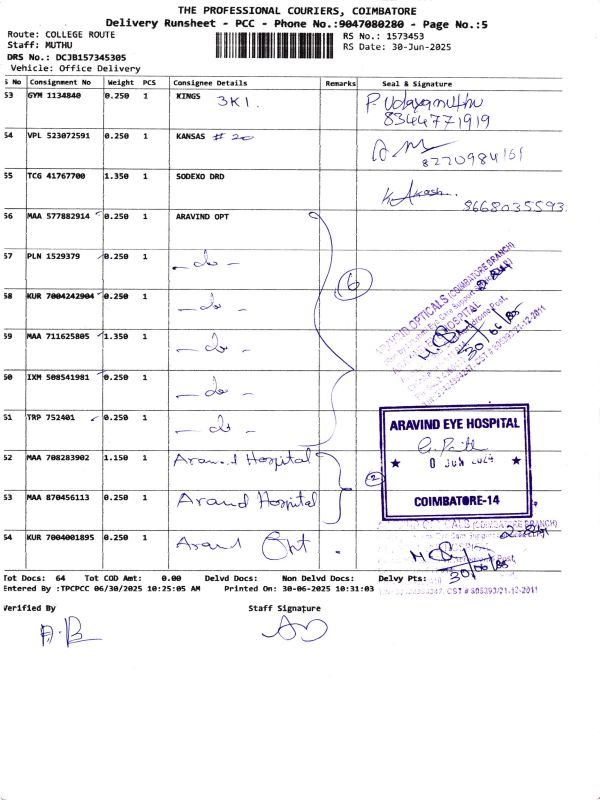 THE PROFESSIONAL COURIERS, COIMBATORE
Delivery Runsheet - PCC - Phone No.:9047080280 - Page No.:5
Route: COLLEGE ROUTE
Staff: MUTHU
RS No.: 1573453
RS Date: 30-Jun-2025
DRS No.: DCJB157345305
Vehicle: Office Delivery
S No Consignment No Weight PCS Consignee Details Remarks Seal & Signature
53 GYM 1134840 0.250 1 KINGS 3K1. P. Udayamuthu
8344771919
54 VPL 523072591 0.250 1 KANSAS # 20
8220984161
55 TCG 41767700 1.350 1 SODEXO DRD K. Akash.
8668035593
56 MAA 577882914 0.250 1 ARAVIND OPT
57 PLN 1529379 0.250 1 - do -
58 KUR 7004242904 0.250 1 - do -
6
59 MAA 711625805 1.350 1 - do -
60 IXM 508541981 0.250 1 - do -
61 TRP 752401 0.250 1 - do -
ARAVIND OPTICALS (COIMBATORE BRANCH)
HOSPITAL
30/06/25
ARAVIND EYE HOSPITAL
COIMBATORE-14
62 MAA 708283902 1.150 1 Aravind Hospital
2
63 MAA 870456113 0.250 1 Aravind Hospital
64 KUR 7004001895 0.250 1 Aravind Opt
30/06/25
Tot Docs: 64 Tot COD Amt: 0.00 Delvd Docs: Non Delvd Docs: Delvy Pts:
Entered By :TPCPCC 06/30/2025 10:25:05 AM Printed On: 30-06-2025 10:31:03
Verified By Staff Signature